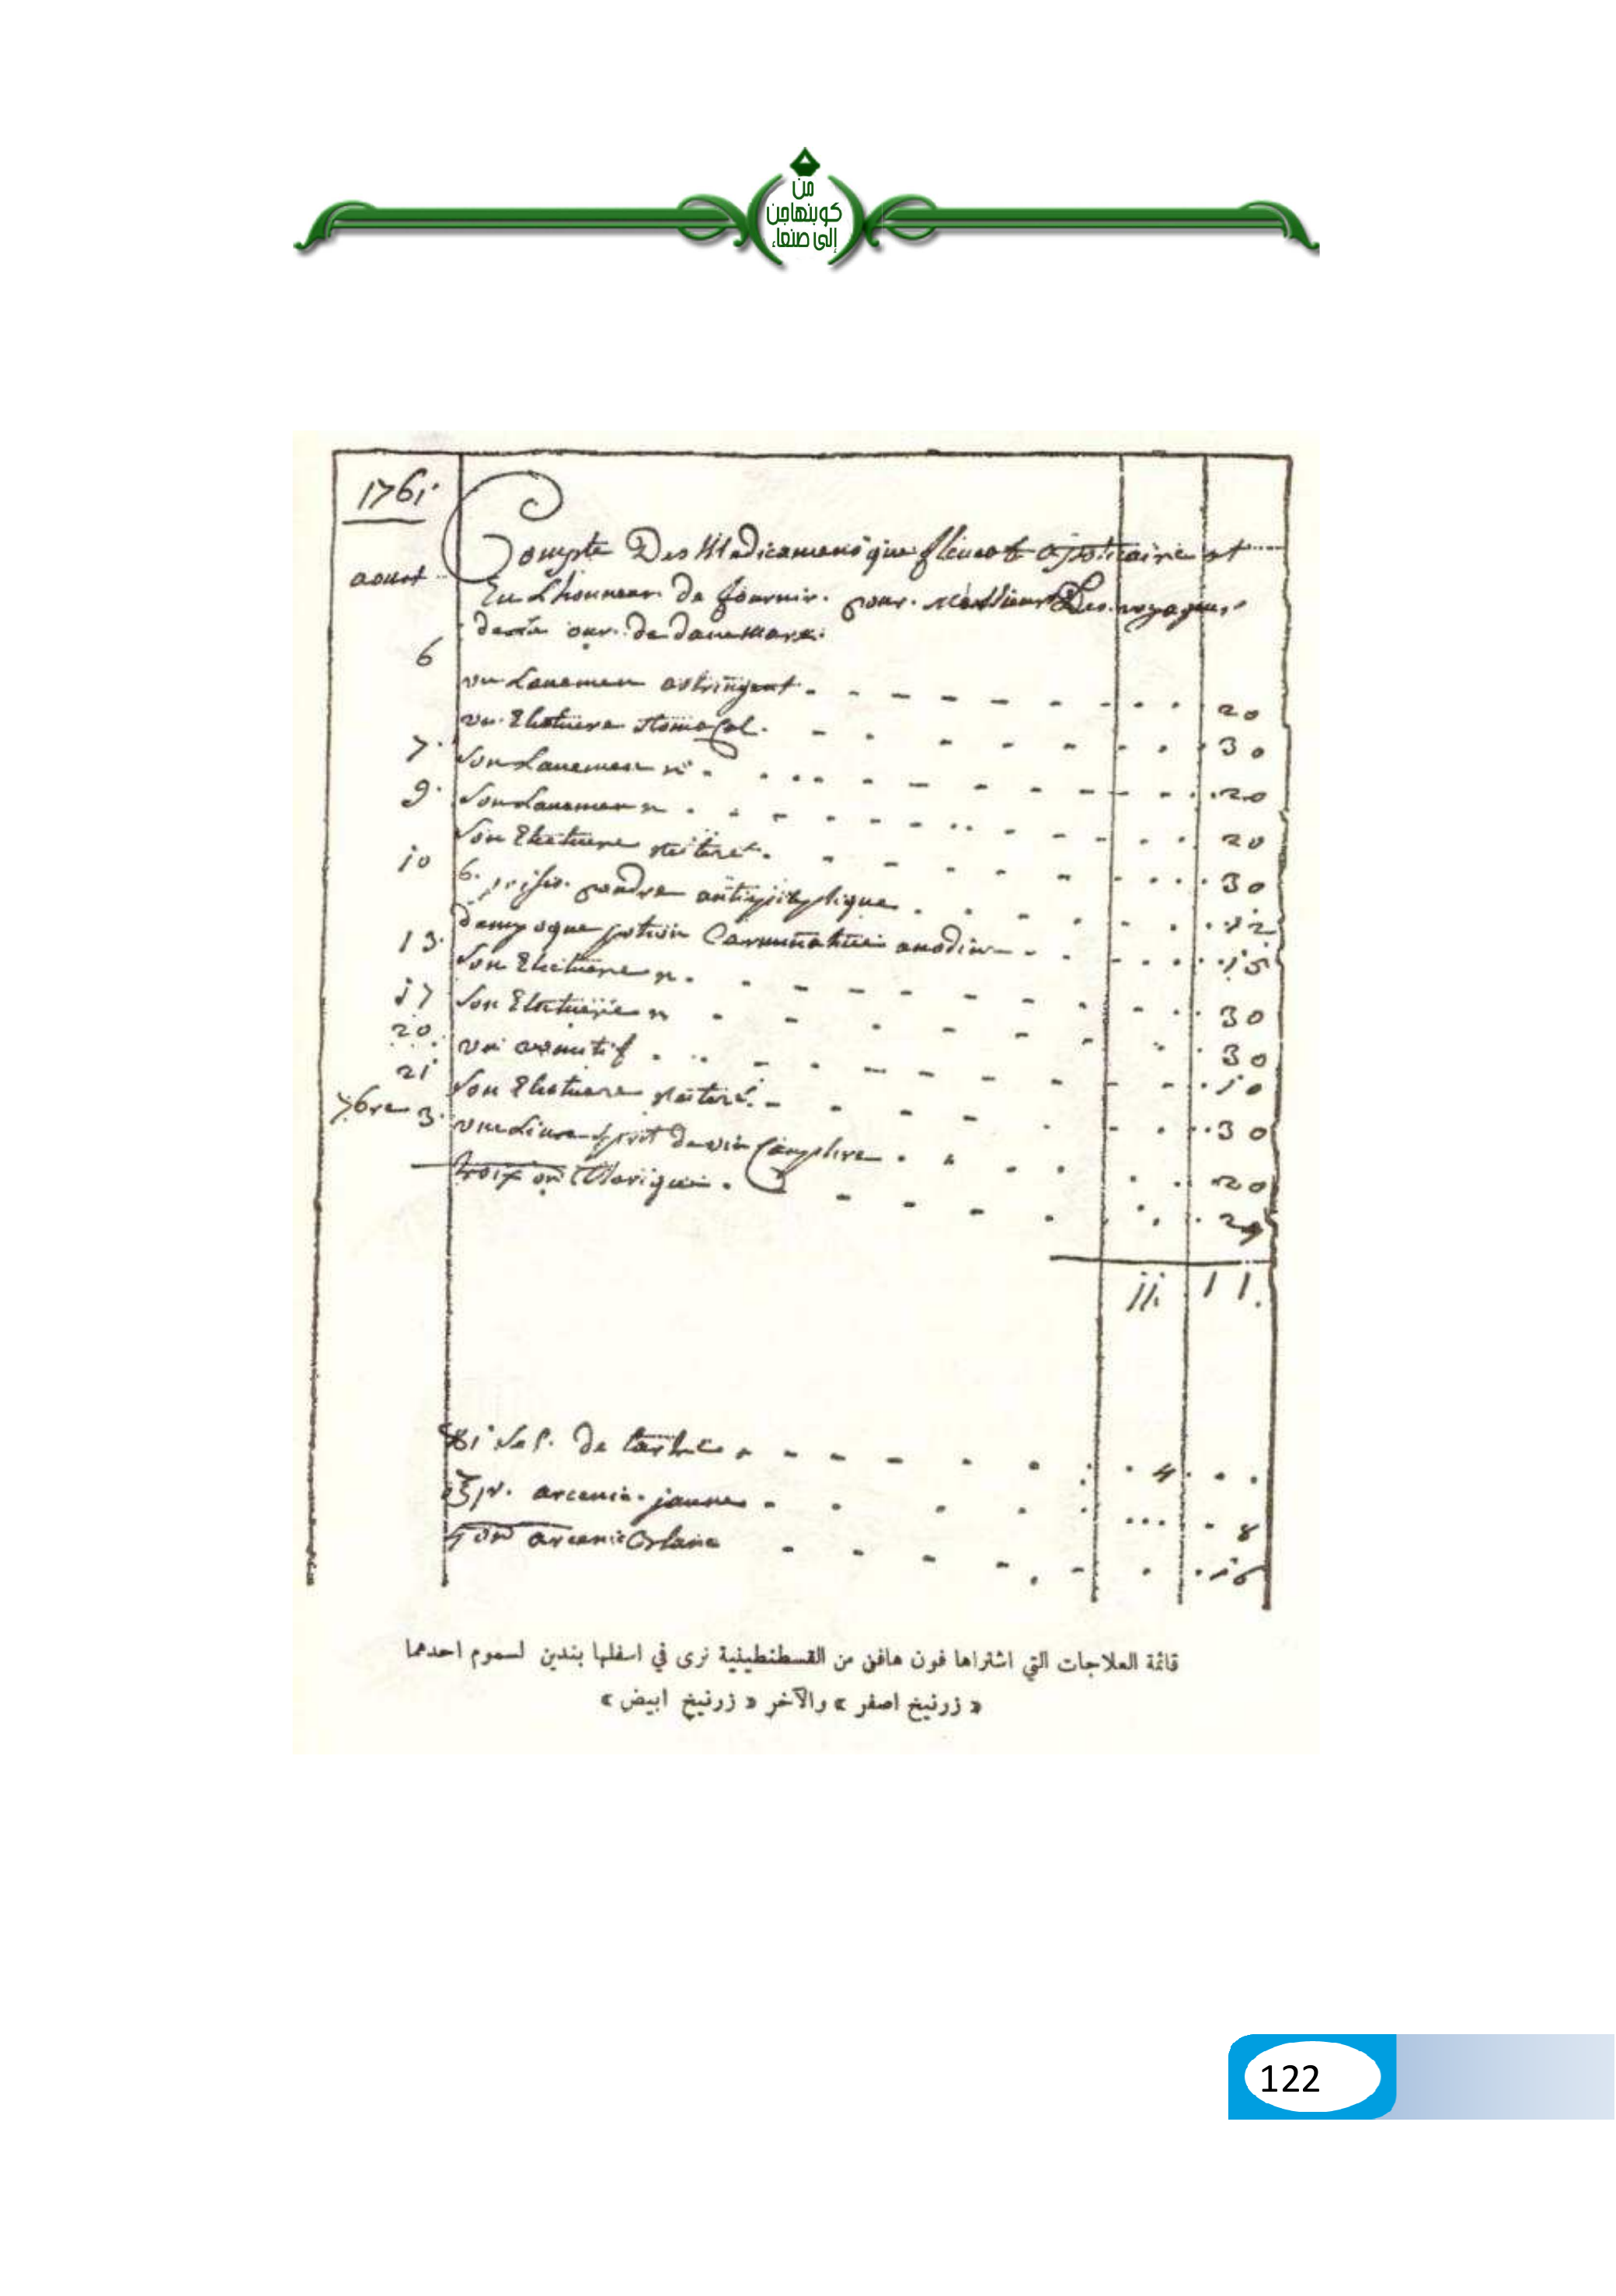 من
كوبنهاجن
إلى صنعاء
1761.
Compte Des Medicamens que fleurat apoticaire at
aoust
Eu Lhonneur De fournir. pour. Messieurs Les voyageurs
De danemarc.
6
un Lauemen astringent 20
un Electuere stomacal. 30
7. Son Lauemen 20
9. Son Lauemen 20
Son Electuere reiteré. 30
10 6. prises. poudre 12
potion anodin 15
13. Son Electuere 30
17 Son Electuere 30
20. un 10
21 Son Electuere reiteré. 30
7bre 3. une Liure Esprit De vin Camphre 20
troix 29
11. 11.
Sel. De tartre 4
arcenic jaune 8
arcenic blanc 16
قائمة العلاجات التي اشتراها فون هافن من القسطنطينية نرى في اسفلها بندين لسموم احدهما
« زرنيخ اصفر » والآخر « زرنيخ ابيض »
122